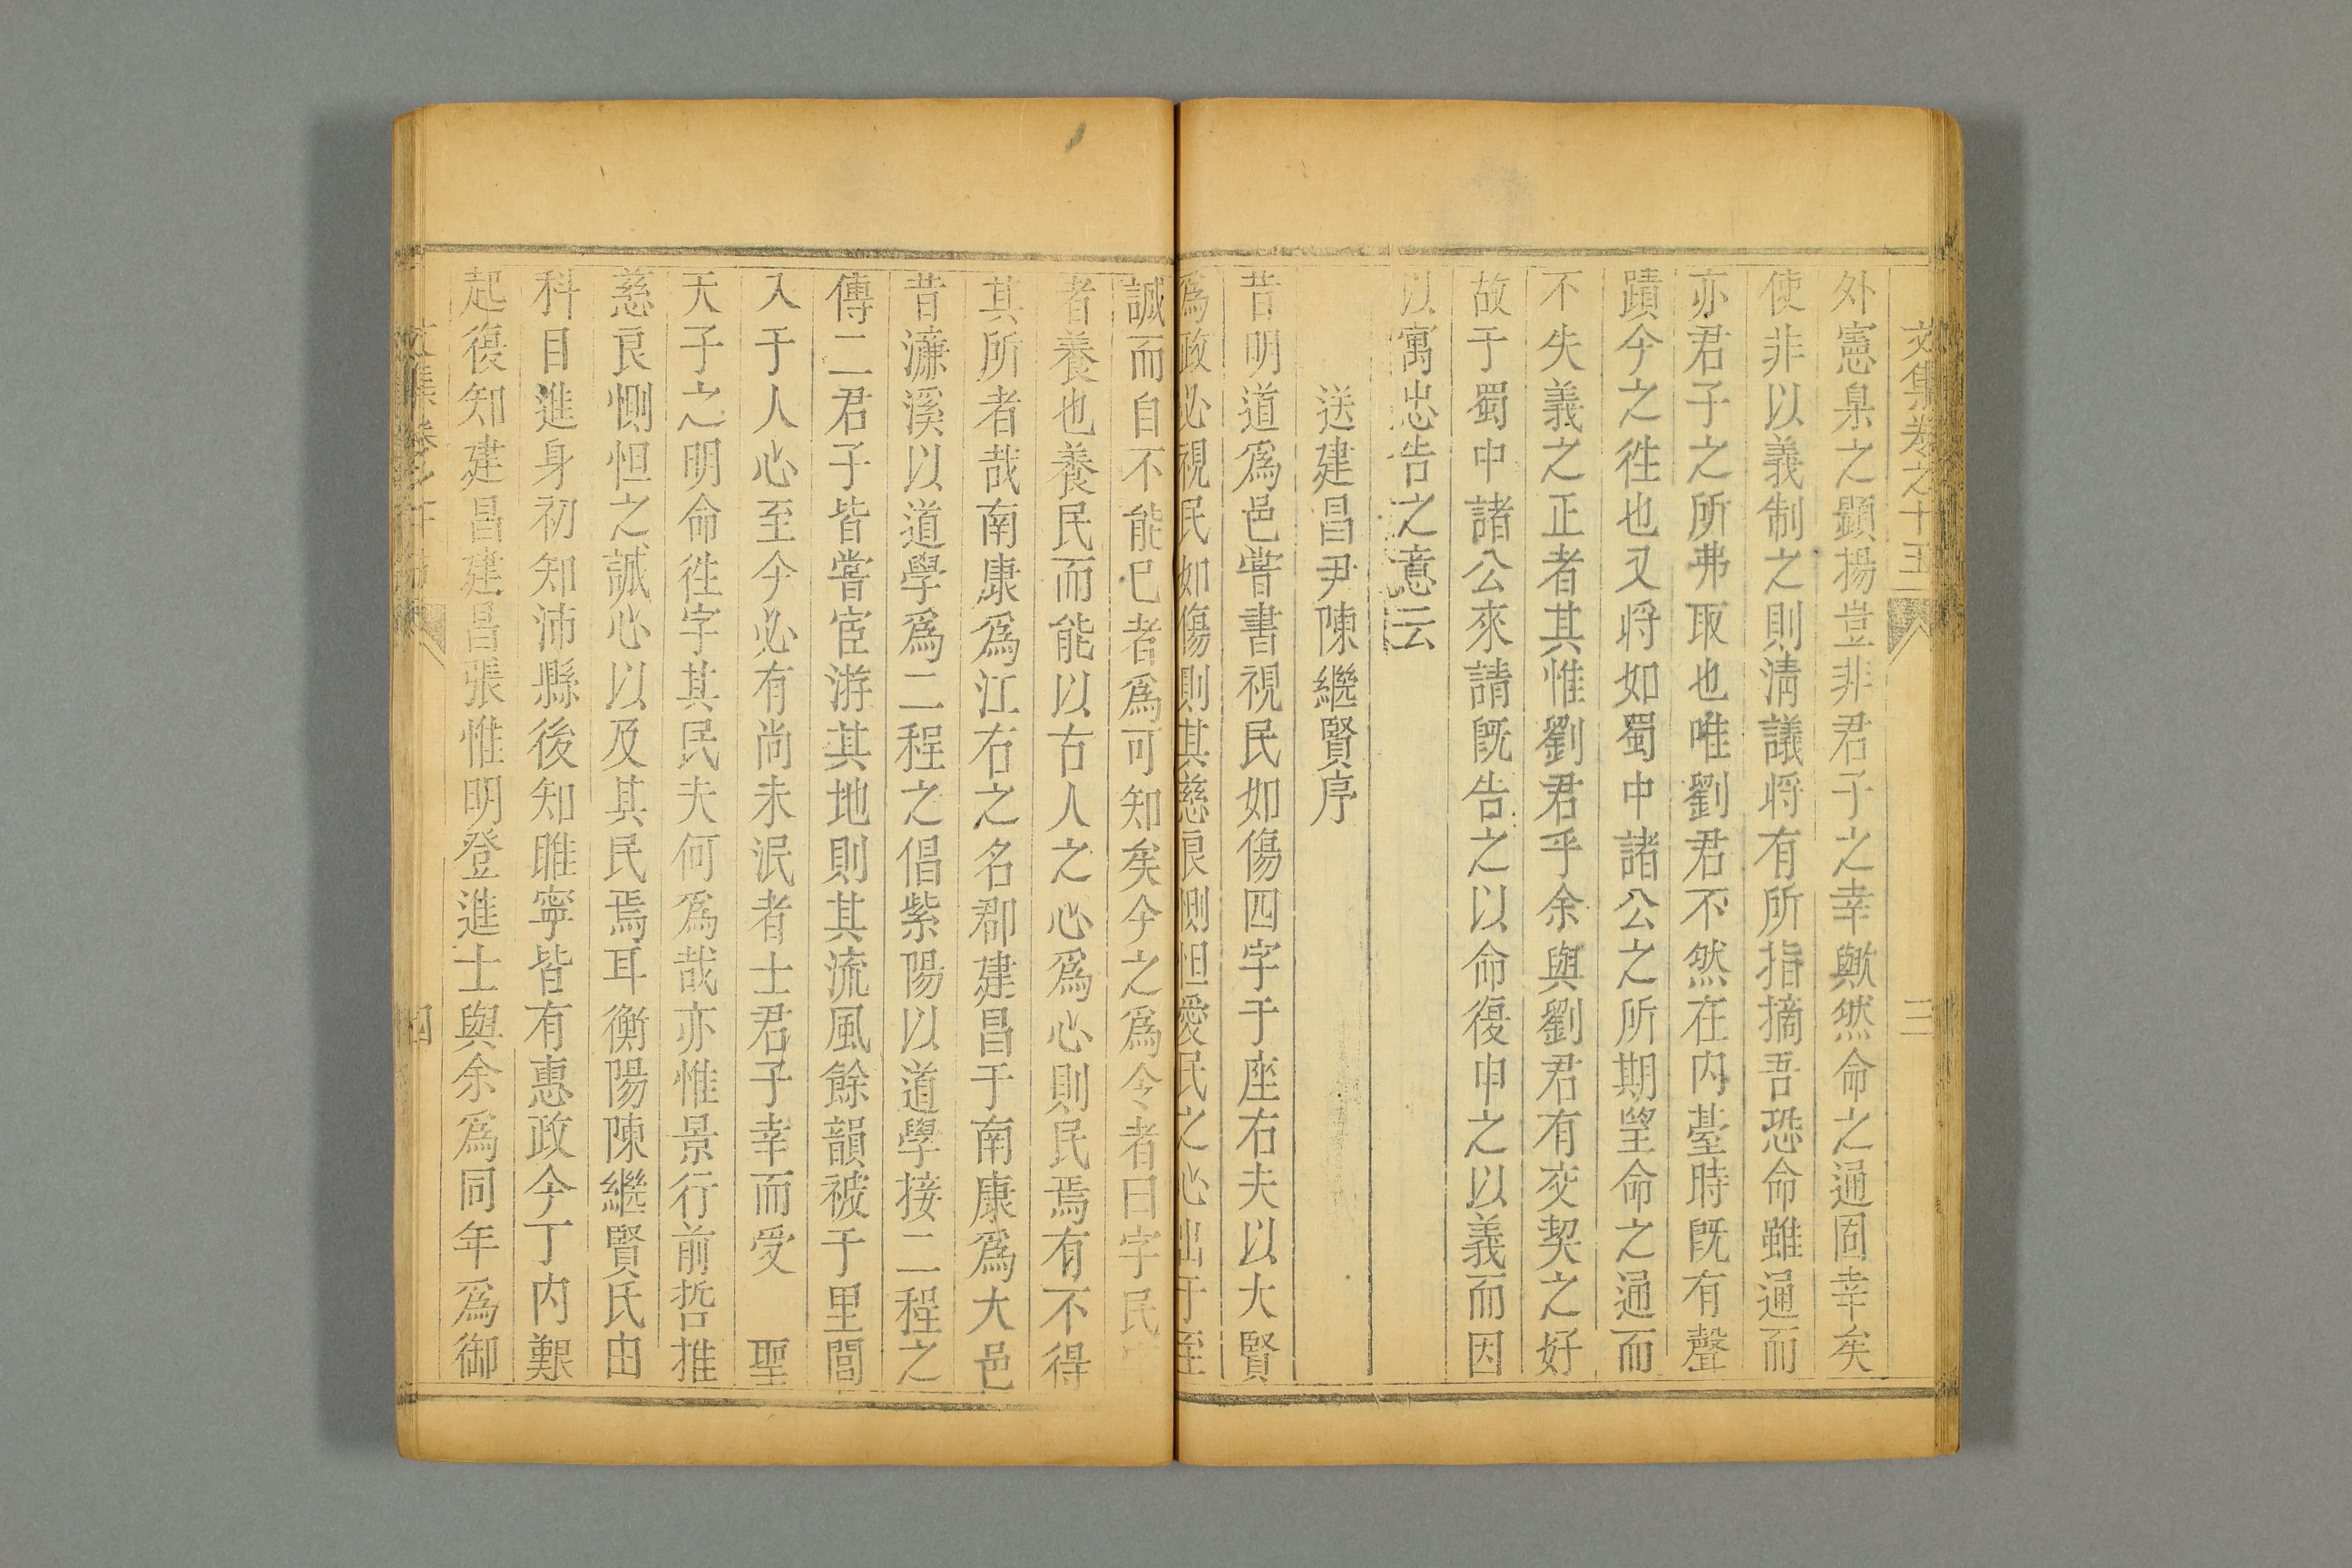 文集卷之十五　三
外憲臬之顯揚豈非君子之幸歟然命之通固幸矣
使非以義制之則淸議将有所指摘吾恐命雖通而
亦君子之所弗取也唯劉君不然在内臺時旣有聲
蹟今之徃也又将如蜀中諸公之所期望命之通而
不失義之正者其惟劉君乎余與劉君有交契之好
故于蜀中諸公來請旣告之以命復申之以義而因
以寓忠告之意云
送建昌尹陳繼賢序
昔明道爲邑嘗書視民如傷四字于座右夫以大賢
爲政必視民如傷則其慈良惻怛愛民之心出于至
誠而自不能已者爲可知矣今之爲令者曰字民
者養也養民而能以古人之心爲心則民焉有不得
其所者哉南康爲江右之名郡建昌于南康爲大邑
昔濂溪以道學爲二程之倡紫陽以道學接二程之
傳二君子皆嘗宦游其地則其流風餘韻被于里閭
入于人心至今必有尚未泯者士君子幸而受　聖
天子之明命徃字其民夫何爲哉亦惟景行前哲推
慈良惻怛之誠心以及其民焉耳衡陽陳繼賢氏由
科目進身初知沛縣後知睢寧皆有惠政今丁内艱
起復知建昌建昌張惟明登進士與余爲同年爲御
文集卷之十五　四